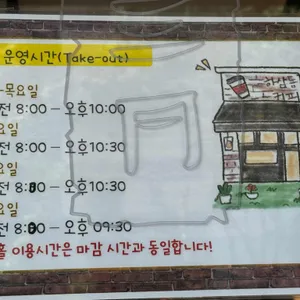 운영시간(Take-out)
-목요일
전 8:00 — 오후10:00
요일
전 8:00 — 오후 10:30
요일
전 8:00 — 오후 10:30
요일
전 8:00 — 오후 09:30
홀 이용시간은 마감 시간과 동일합니다!